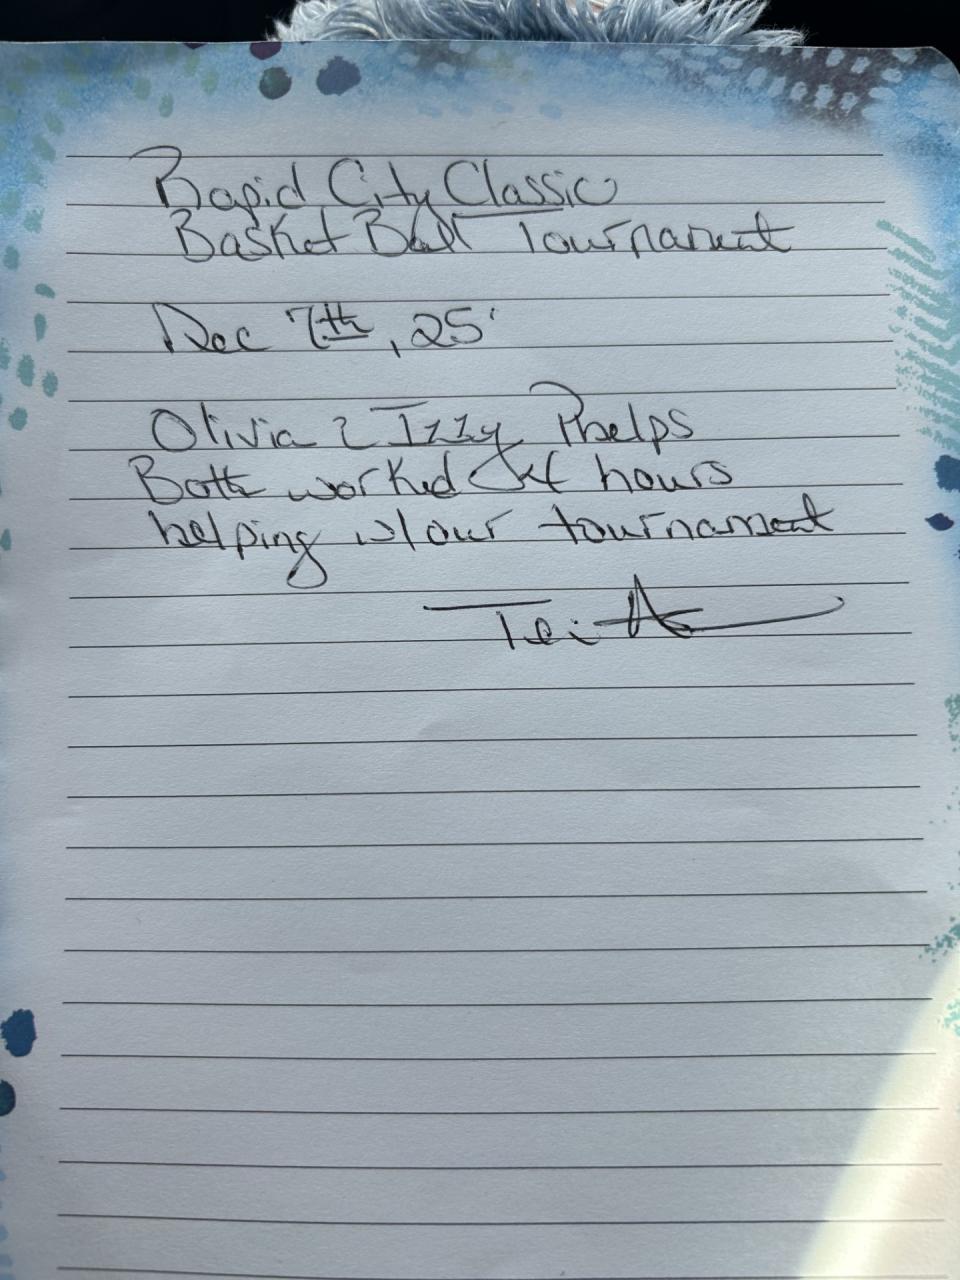 Rapid City Classic
Basket Ball Tournament
Dec 7th, 25'
Olivia & Izzy Phelps
Both worked hours
helping w/our tournament